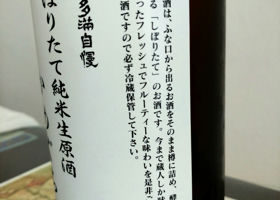 酒は、ふな口から出るお酒をそのまま樽に詰め、酵
る「しぼりたて」のお酒です。今まで蔵人しか味
ったフレッシュでフルーティーな味わいを是非ご
酒ですので必ず冷蔵保管して下さい。
多満自慢
ぼりたて純米生原酒